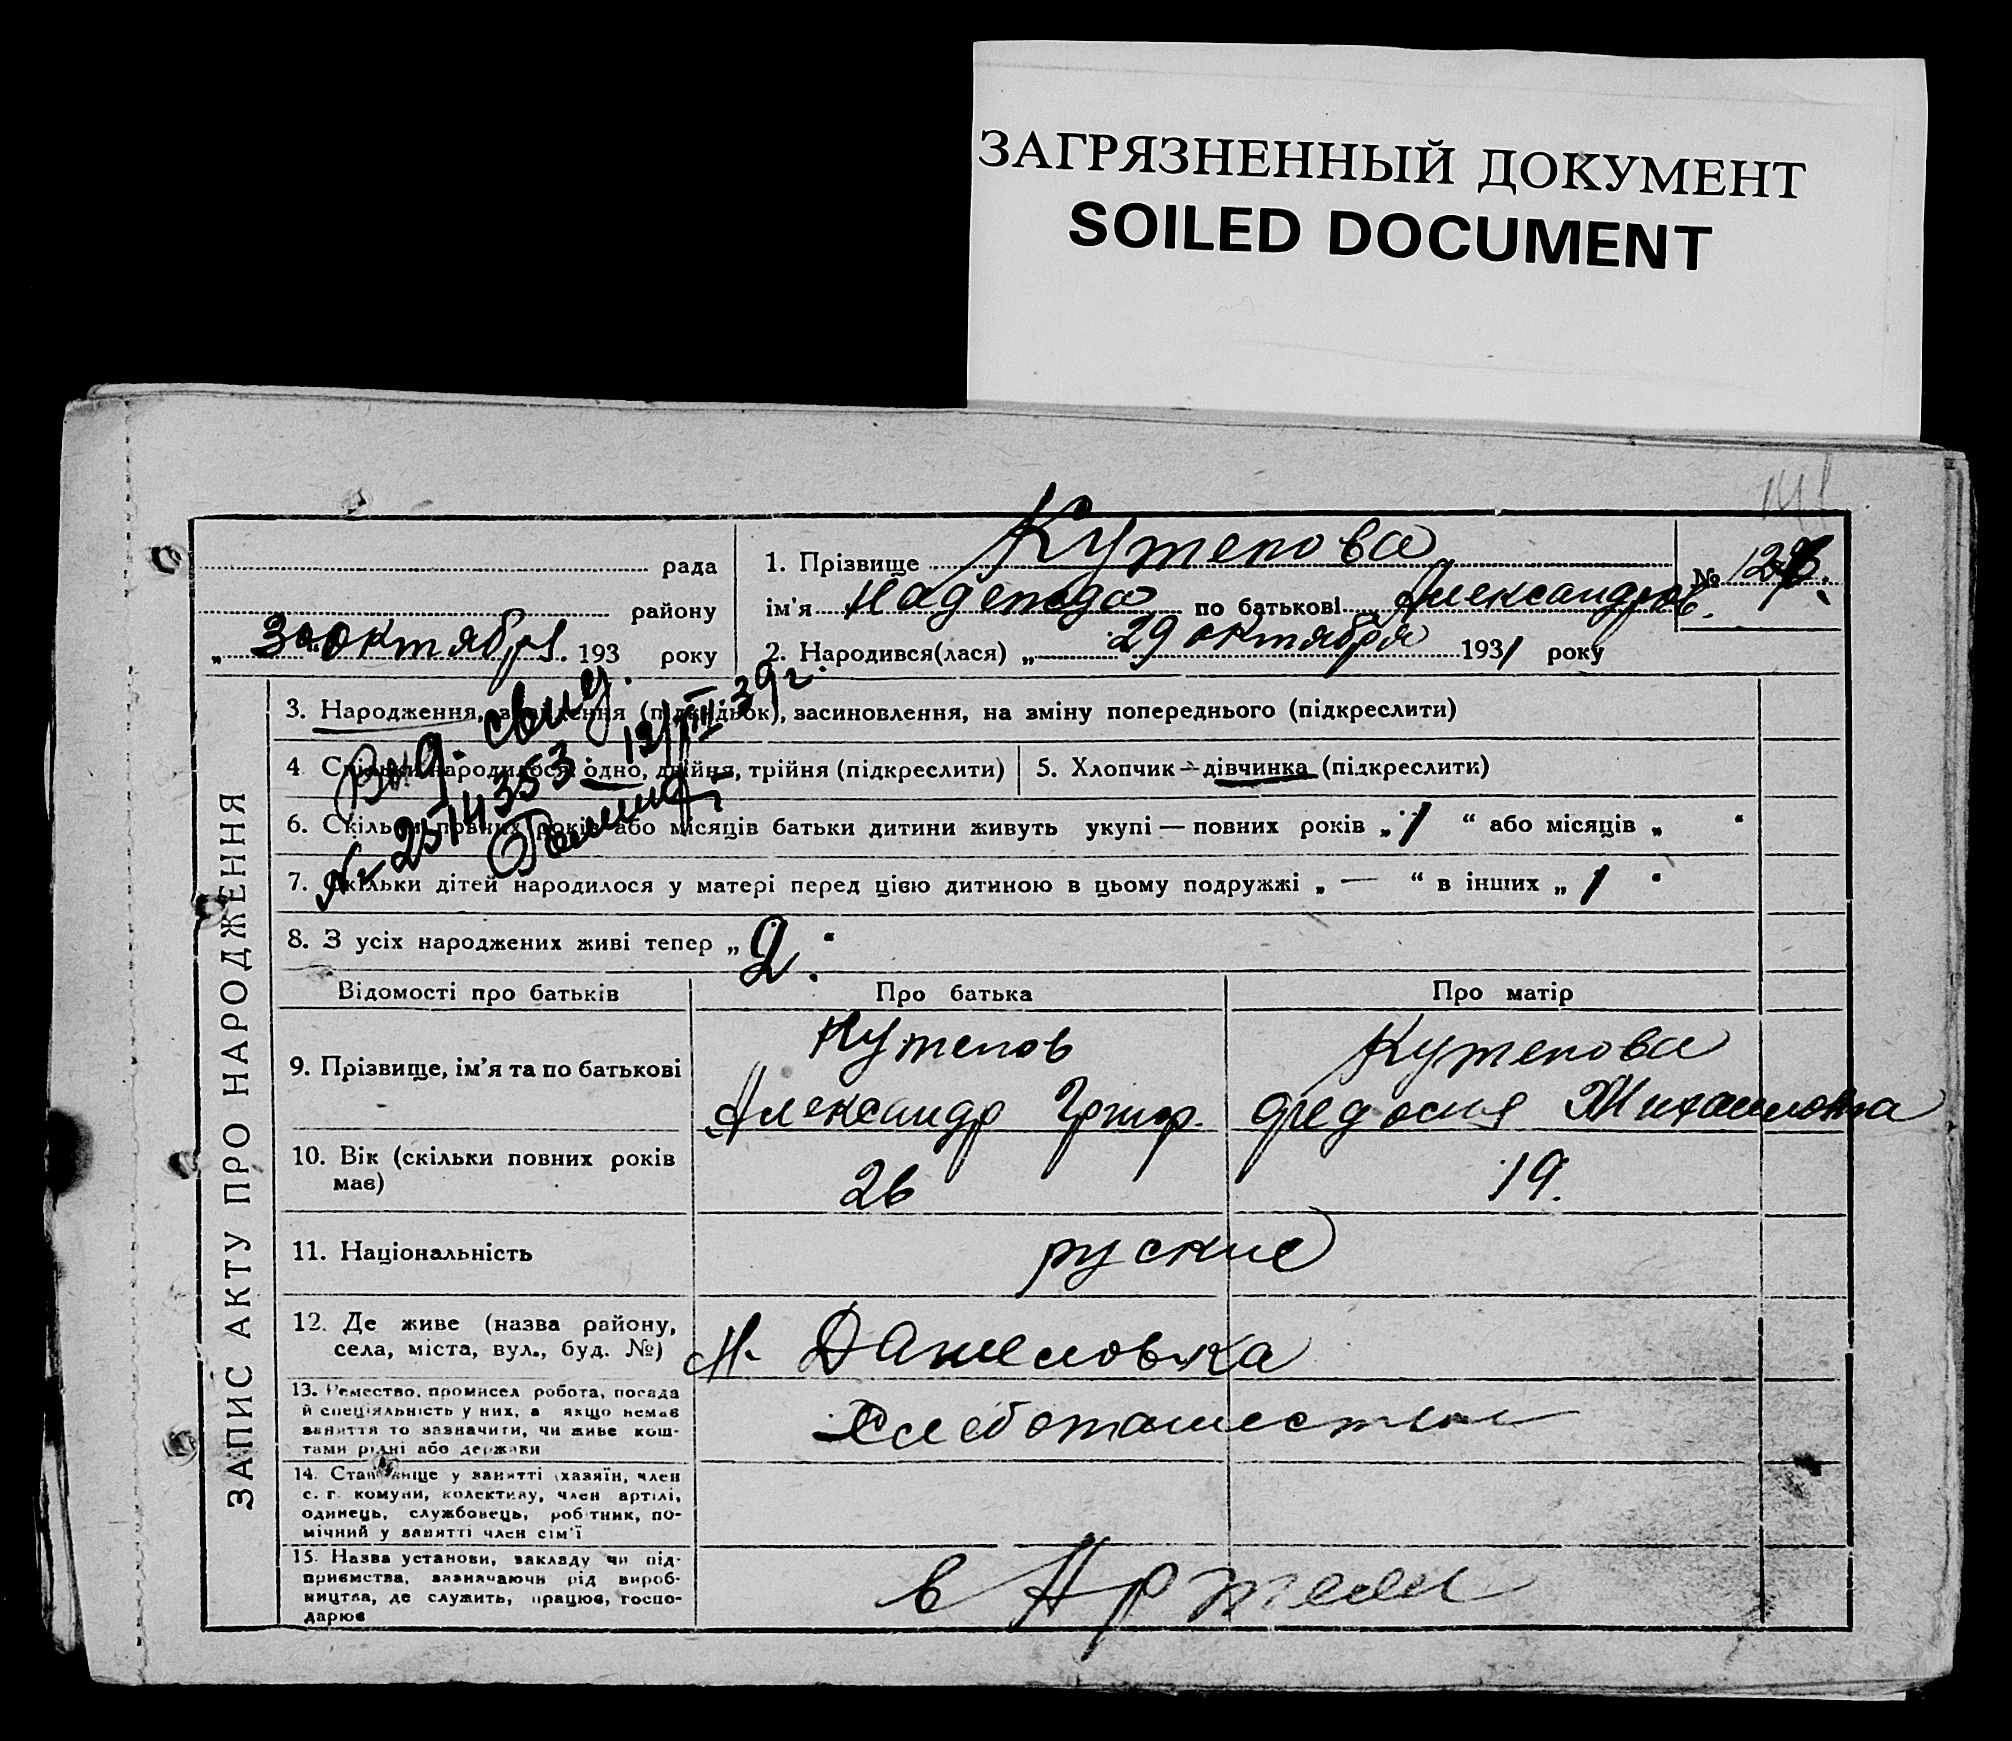 ЗАГРЯЗНЕННЫЙ ДОКУМЕНТ
SOILED DOCUMENT
рада
району
„ 30 " октября 193 року
1. Прізвище Кутепова
ім'я Надежда по батькові Александров.
2. Народився(лася) „ 29 октября 1931 року
№
Выд. свид.
№ 2514353 12/VIII 39 г.
ЗАПИС АКТУ ПРО НАРОДЖЕННЯ
3. Народження, (підкидьок), засиновлення, на зміну попереднього (підкреслити)
4 Скільки народилося: одно, двійня, трійня (підкреслити)
5. Хлопчик — дівчинка (підкреслити)
6. Скільки повних років або місяців батьки дитини живуть укупі — повних років „ 1 “ або місяців „ “
7. Скільки дітей народилося у матері перед цією дитиною в цьому подружжі „ — “ в інших „ 1 “
8. З усіх народжених живі тепер „ 2. “
Відомості про батьків
Про батька
Про матір
9. Прізвище, ім'я та по батькові
Кутепов
Александр Григор.
Кутепова
Федосия Михаиловна
10. Вік (скільки повних років
має)
26
19.
11. Національність
руские
12. Де живе (назва району,
села, міста, вул., буд. №)
Н. Даниловка
13. Ремество, промисел робота, посада
й спеціяльність у них, а якщо немає
заняття то зазначити, чи живе кош-
тами рідні або держави
14. Становище у занятті (хазяїн, член
с. г. комуни, колективу, член артілі,
одинець, службовець, робітник, по-
мічний у занятті член сім'ї
15. Назва установи, закладу чи під-
приємства, зазначаючи рід вироб-
ництва, де служить, працює, госпо-
дарює
в Артели